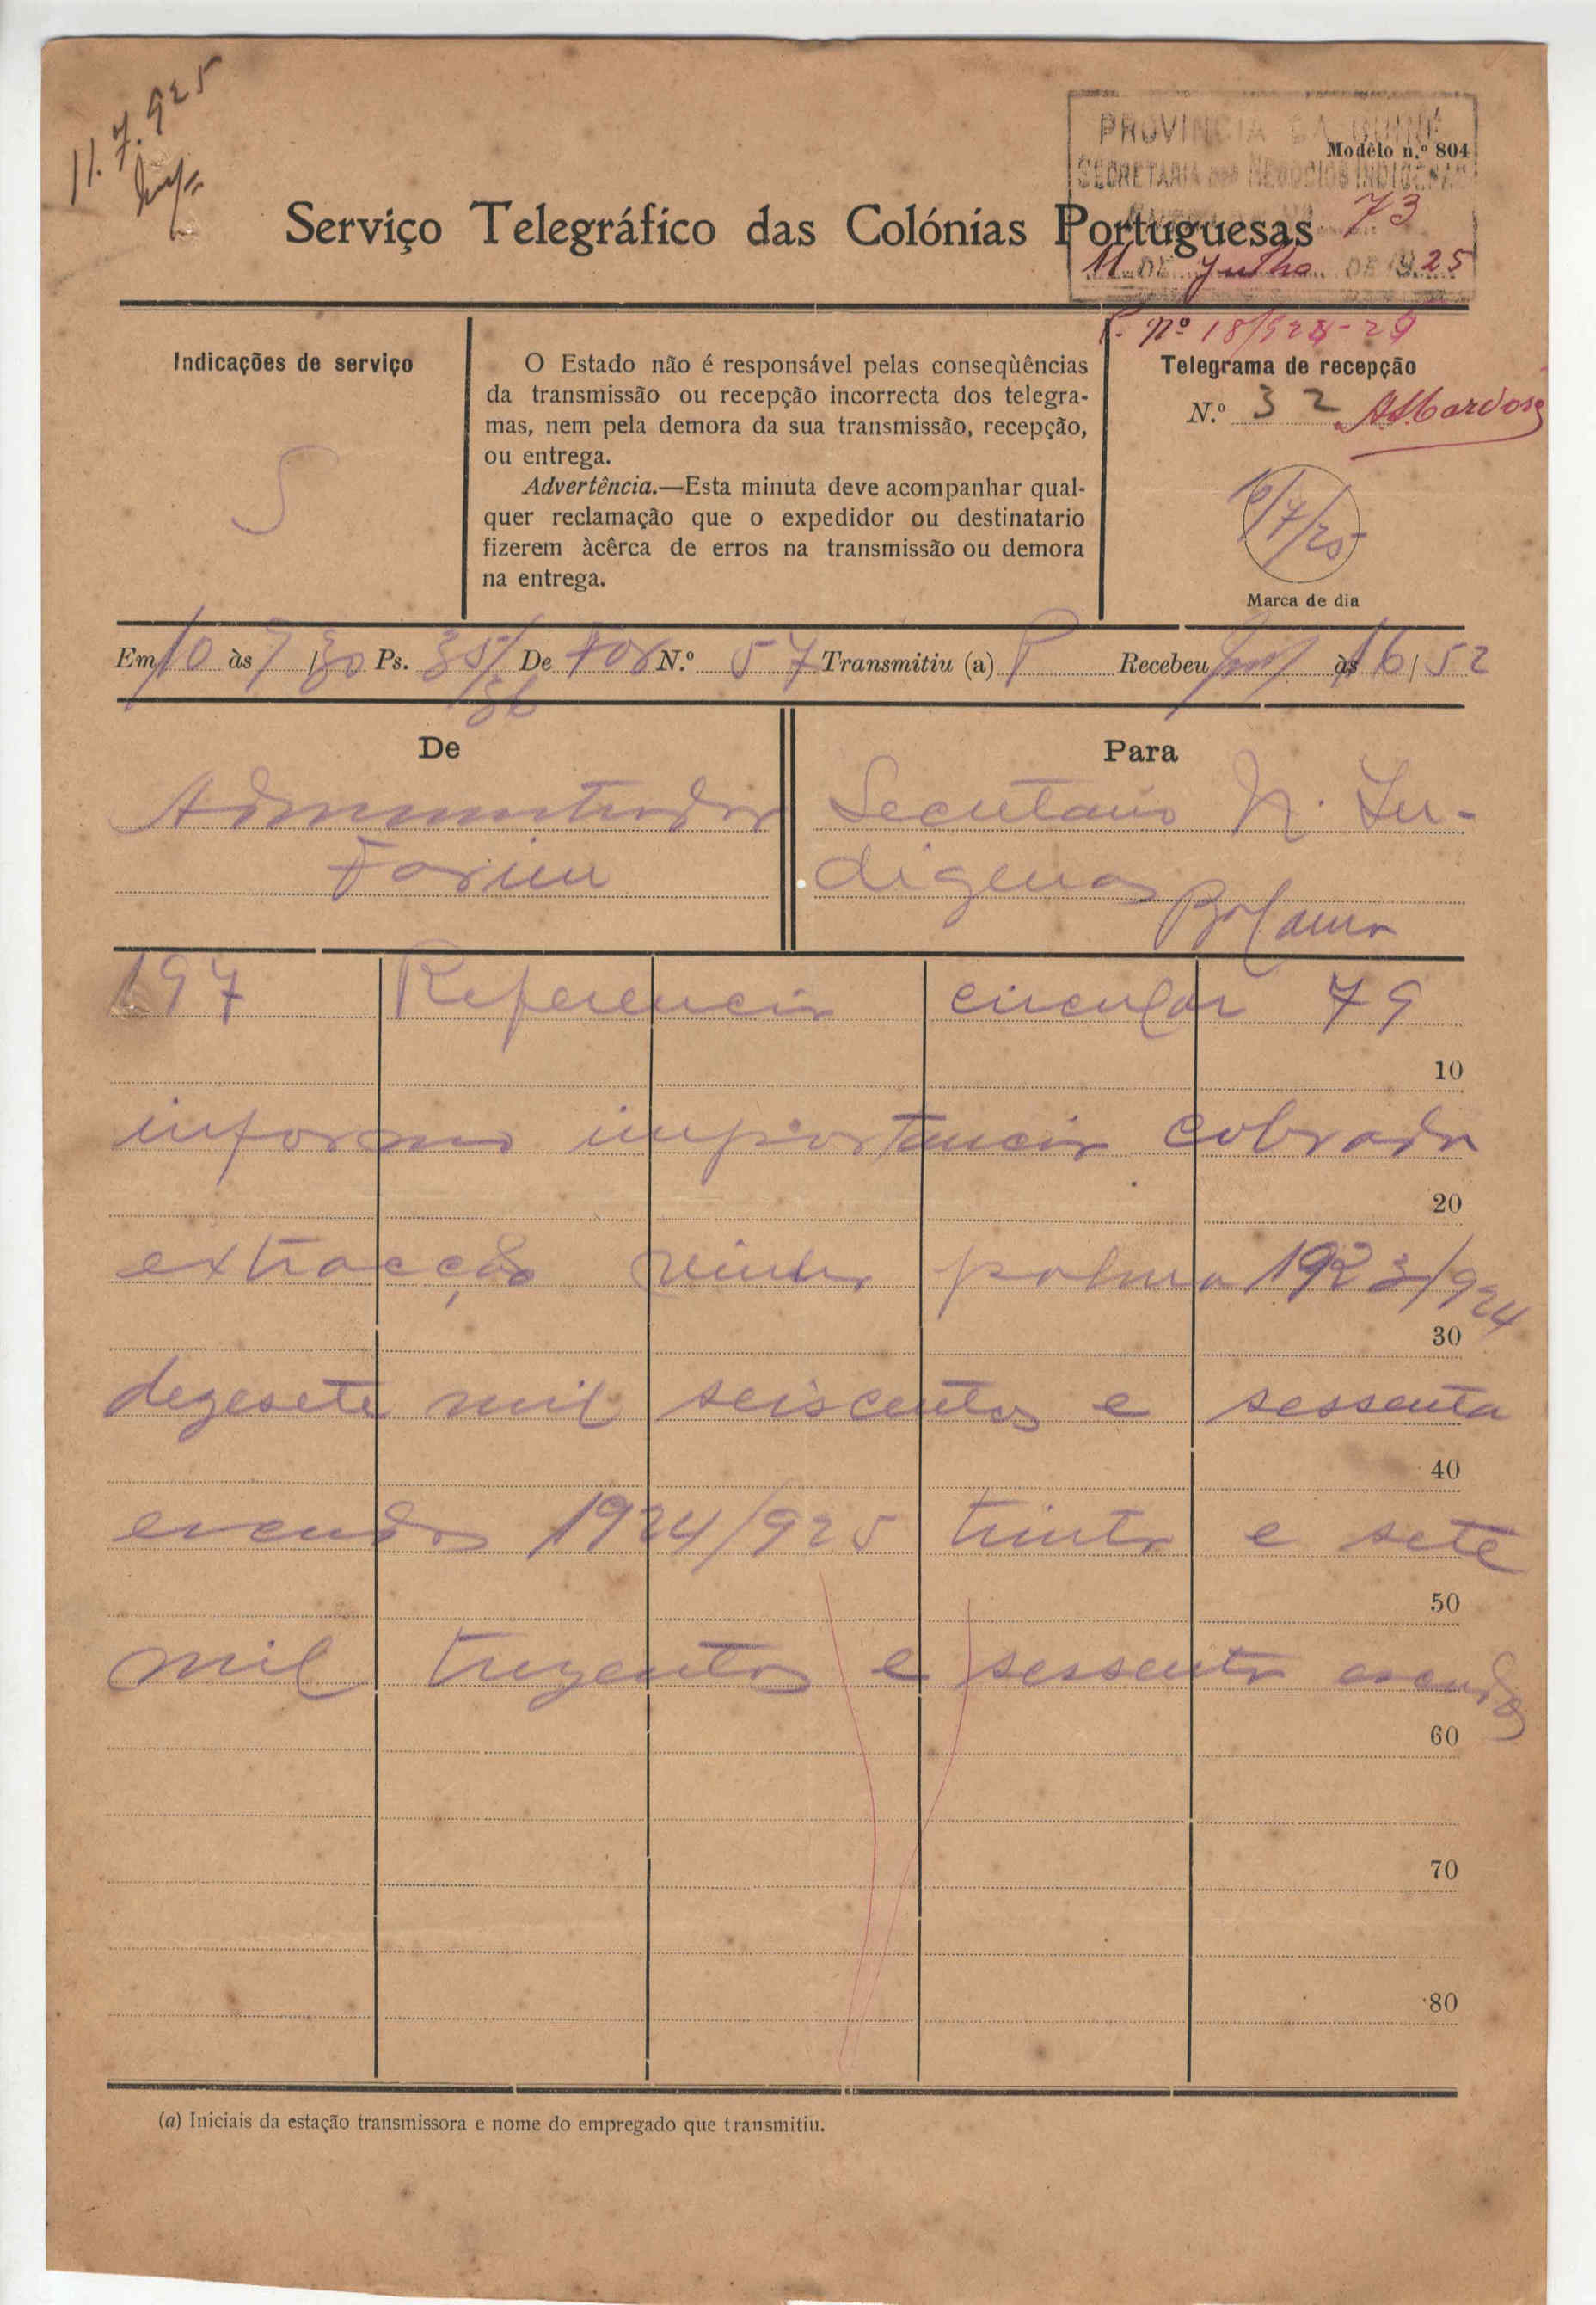 11.7.925
PROVINCIA DA GUINÉ
Modêlo n.º 804
SECRETARIA dos NEGOCIOS INDIGENAS
73
Serviço Telegráfico das Colónias Portuguesas
11 DE Julho DE 1925
P. nº 18/924-25
Indicações de serviço
S
O Estado não é responsável pelas conseqùências
da transmissão ou recepção incorrecta dos telegra-
mas, nem pela demora da sua transmissão, recepção,
ou entrega.
Advertência.—Esta minuta deve acompanhar qual-
quer reclamação que o expedidor ou destinatario
fizerem àcêrca de erros na transmissão ou demora
na entrega.
Telegrama de recepção
N.º 32
10/7/25
Marca de dia
Em 10 às 7/30 Ps. 35/36 De For N.º 57 Transmitiu (a) P Recebeu às 16/52
De
Administrador
Farim
Para
Secretario N. In-
digenas
Bolama
197 Referencia circular 79
10
informo importancia cobrada
20
extracção vinho palma 1923/924
30
dezesete mil seiscentos e sessenta
40
escudos 1924/925 trinta e sete
50
mil trezentos e sessenta escudos
60
70
80
(a) Iniciais da estação transmissora e nome do empregado que transmitiu.